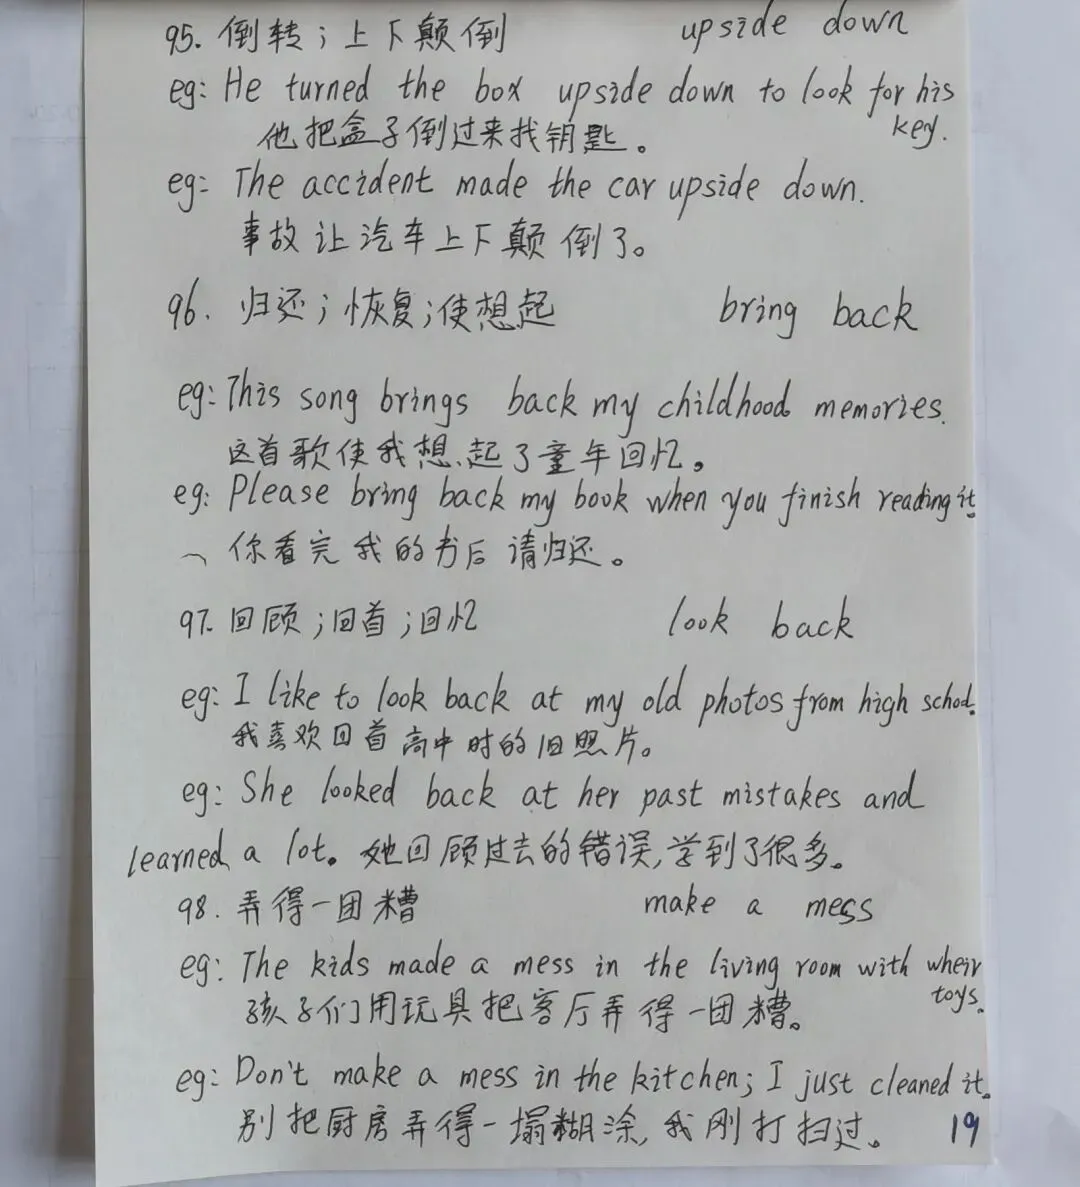 95. 倒转；上下颠倒 upside down
eg: He turned the box upside down to look for his
key.
他把盒子倒过来找钥匙。
eg: The accident made the car upside down.
事故让汽车上下颠倒了。
96. 归还；恢复；使想起 bring back
eg: This song brings back my childhood memories.
这首歌使我想起了童年回忆。
eg: Please bring back my book when you finish reading it.
你看完我的书后请归还。
97. 回顾；回首；回忆 look back
eg: I like to look back at my old photos from high school.
我喜欢回首高中时的旧照片。
eg: She looked back at her past mistakes and
learned a lot. 她回顾过去的错误,学到了很多。
98. 弄得一团糟 make a mess
eg: The kids made a mess in the living room with wheir
toys.
孩子们用玩具把客厅弄得一团糟。
eg: Don't make a mess in the kitchen; I just cleaned it.
别把厨房弄得一塌糊涂,我刚打扫过。 19